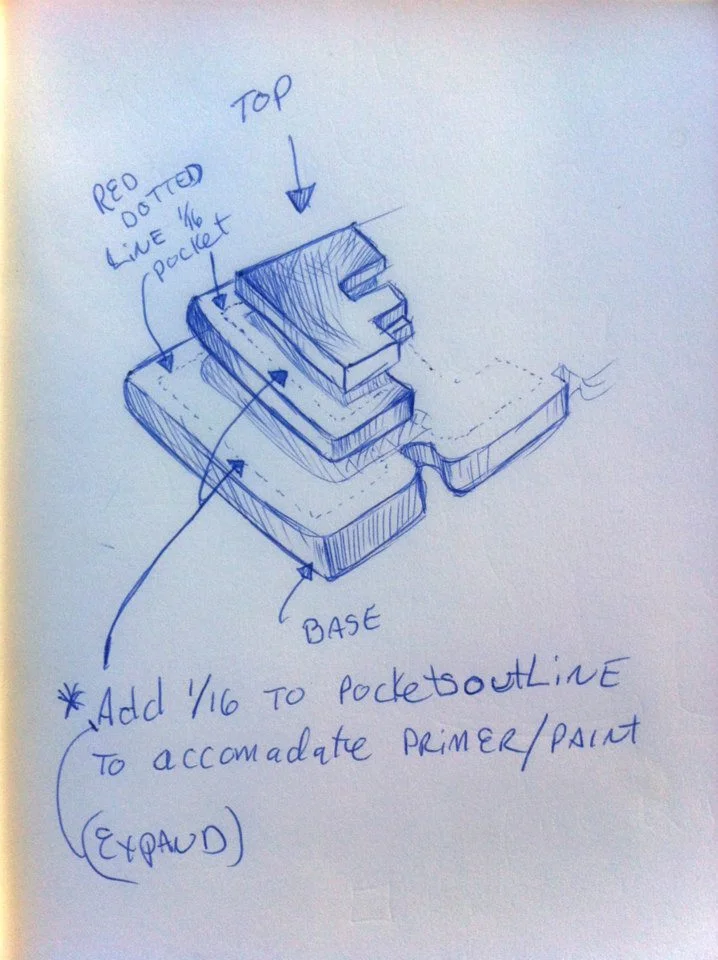 TOP
RED
DOTTED
LINE 1/16
pocket
BASE
* Add 1/16 TO POCKETSOUTLINE
TO accomadate PRIMER/PAINT
(EXPAND)